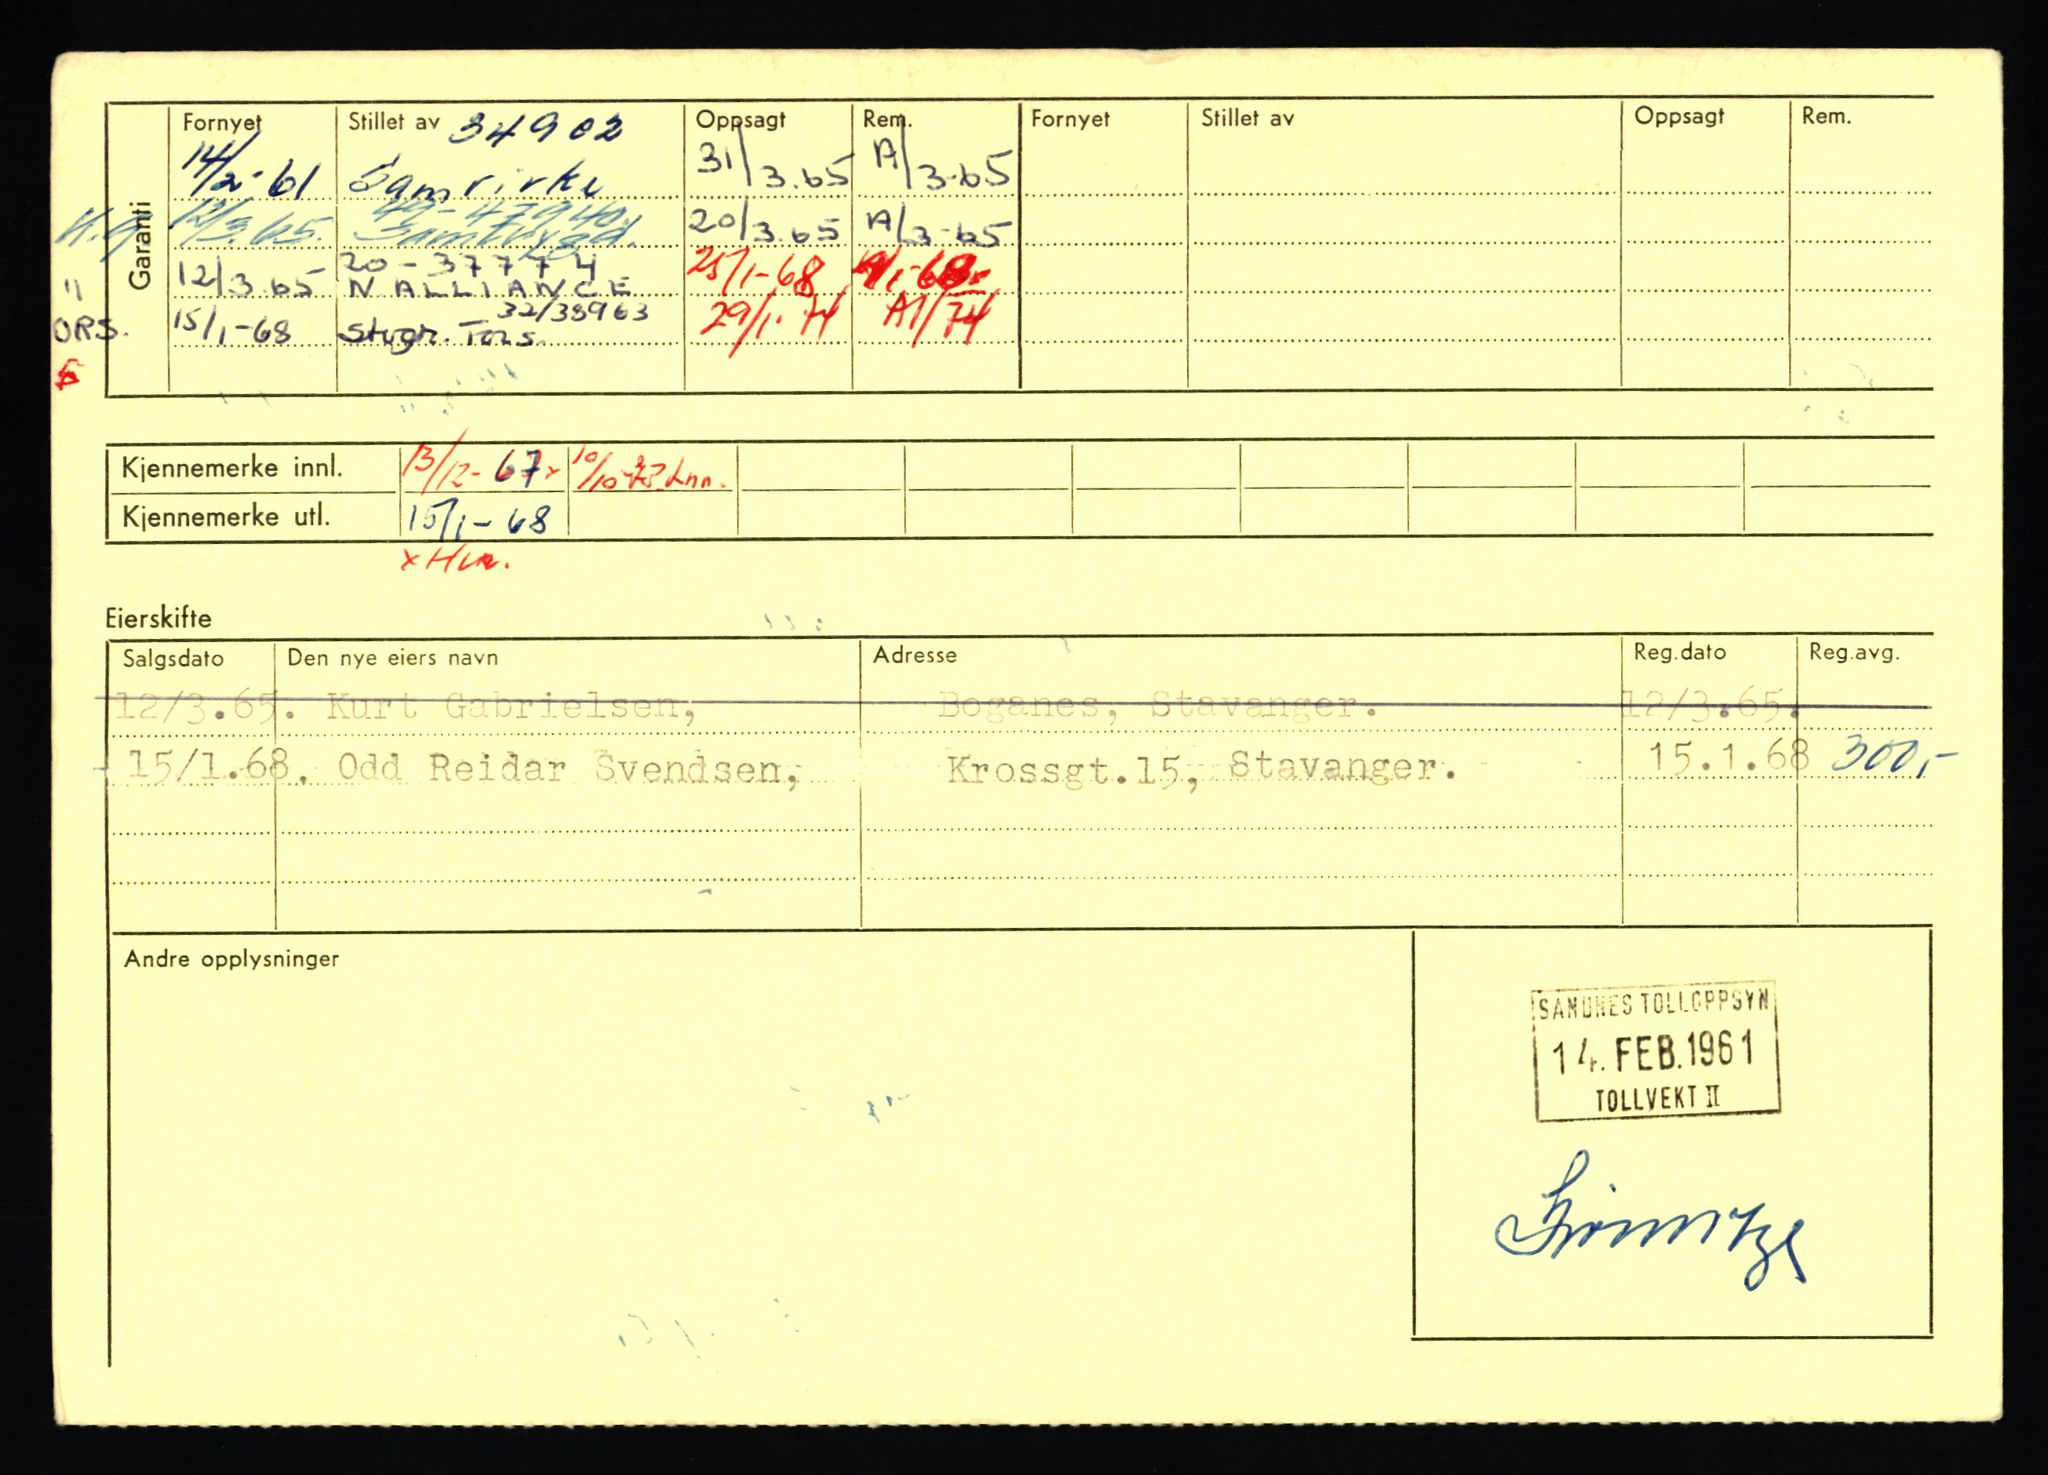 Fornyet Stillet av 34902 Oppsagt Rem. Fornyet Stillet av Oppsagt Rem.
Garanti
14/2-61 Samvirke 31/3.65 A/3-65
K.G 12/3.65. 49-47940 20/3.65 A/3-65
" 12/3 65 20-37774 25/1-68
N ALLIANCE
ORS. 15/1-68 32/38963 29/1-74 A1/74
Stvgr. Tors.
Kjennemerke innl. 13/12-67x
Kjennemerke utl. 15/1-68
Eierskifte
Salgsdato Den nye eiers navn Adresse Reg.dato Reg.avg.
12/3.65. Kurt Gabrielsen, Boganes, Stavanger. 12/3.65.
15/1.68. Odd Reidar Svendsen, Krossgt.15, Stavanger. 15.1.68 300,-
Andre opplysninger
SANDNES TOLLOPPSYN
14. FEB. 1961
TOLLVEKT II